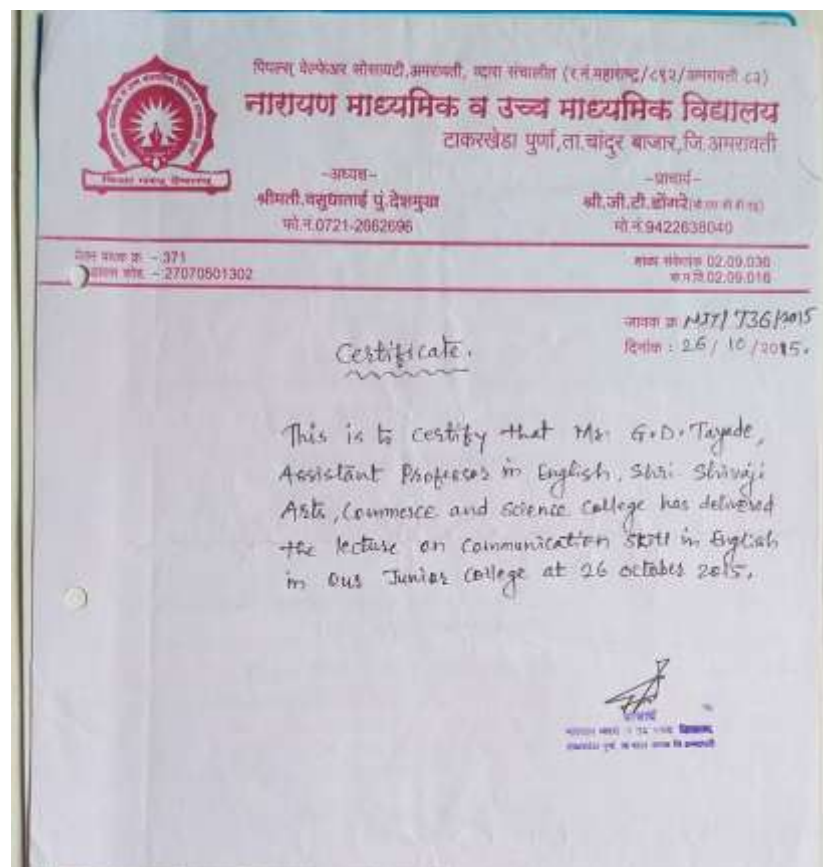 पिपल्स् वेल्फेअर सोसायटी,अमरावती, व्दारा संचालीत (र.नं.महाराष्ट्र/८९२/अमरावती ८२)
नारायण माध्यमिक व उच्च माध्यमिक विद्यालय
टाकरखेडा पुर्णा,ता.चांदुर बाजार,जि.अमरावती
-अध्यक्ष-
श्रीमती.वसुधाताई पुं.देशमुख
फो.नं.0721-2662696
-प्राचार्य-
श्री.जी.टी.डोंगरे
मो.नं.9422638040
- 371
- 27070501302
02.09.036
02.09.016
जावक क्र NJT/736/2015
दिनांक : 26/10/2015.
Certificate.
This is to certify that Mr. G.D. Tayade,
Assistant Professor in English, Shri Shivaji
Arts, Commerce and Science College has delivered
the lecture on Communication Skill in English
in Our Junior College at 26 October 2015.
प्राचार्य